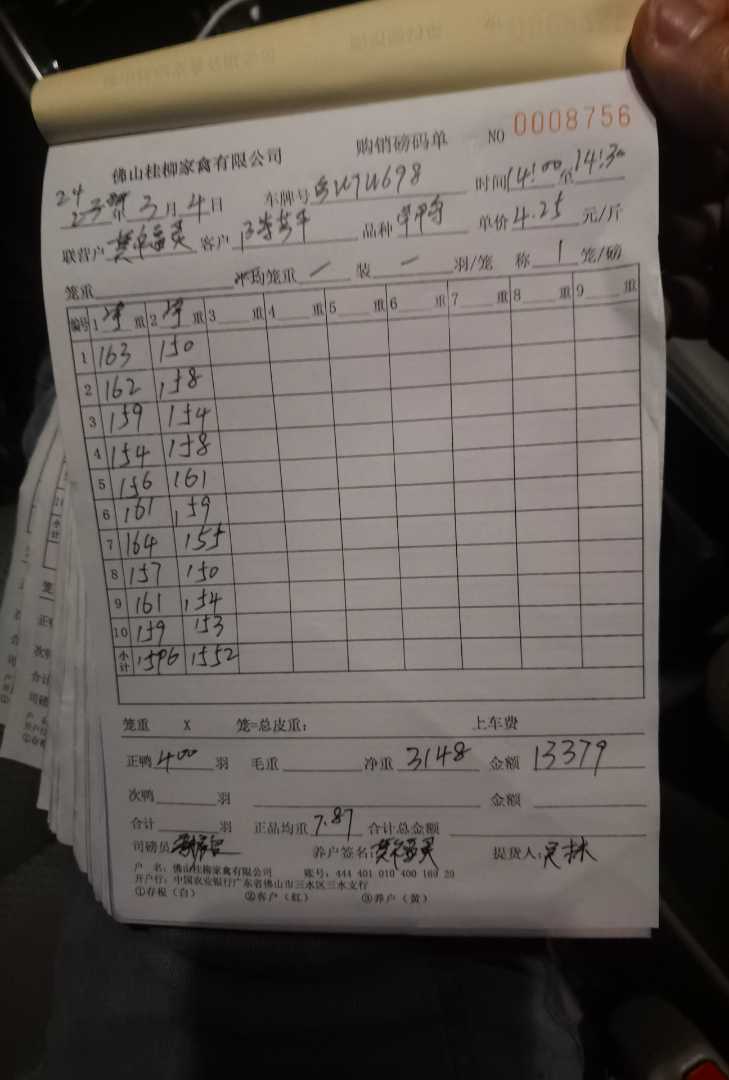 佛山桂柳家禽有限公司 购销磅码单 NO 0008756
24
3月4日 车牌号 W698 时间 14:00 至 14:30
联营户 客户 品种 单价 4.25 元/斤
笼重 平均笼重 — 装 — 羽/笼 称 1 笼/磅
编号 1 净 重 2 净 重 3 重 4 重 5 重 6 重 7 重 8 重 9 重
1 163 150
2 162 158
3 159 154
4 154 158
5 156 161
6 161 159
7 164 155
8 157 150
9 161 154
10 159 153
小计 1596 1552
笼重 X 笼=总皮重: 上车费
正鸭 400 羽 毛重 净重 3148 金额 13379
次鸭 羽 金额
合计 羽 正品均重 7.87 合计总金额
司磅员: 养户签名: 提货人: 吴林
户 名: 佛山桂柳家禽有限公司 账号: 444 401 010 400 169 20
开户行: 中国农业银行广东省佛山市三水区三水支行
①存根(白) ②客户(红) ③养户(黄)